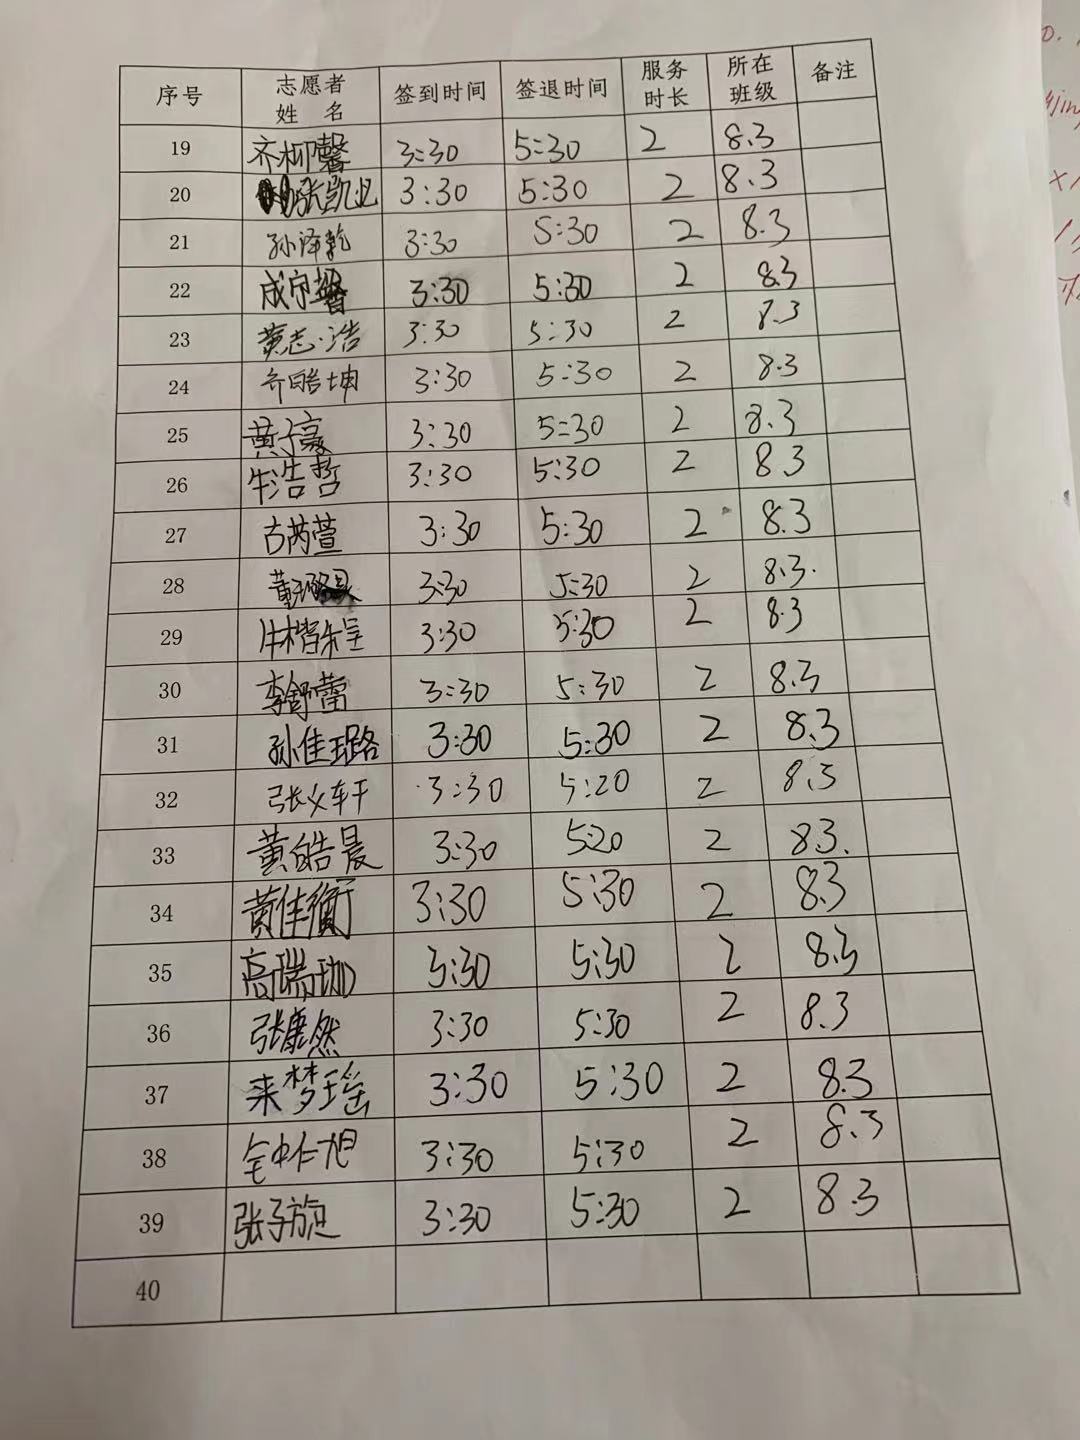 序号 志愿者姓 名 签到时间 签退时间 服务时长 所在班级 备注
19 齐柳馨 3:30 5:30 2 8.3
20 张凯业 3:30 5:30 2 8.3
21 孙泽乾 3:30 5:30 2 8.3
22 成宇 3:30 5:30 2 8.3
23 黄志浩 3:30 5:30 2 8.3
24 齐皓坤 3:30 5:30 2 8.3
25 黄子豪 3:30 5:30 2 8.3
26 牛浩哲 3:30 5:30 2 8.3
27 古芮萱 3:30 5:30 2 8.3
28 3:30 5:30 2 8.3.
29 3:30 5:30 2 8.3
30 李舒蕾 3:30 5:30 2 8.3
31 孙佳璐 3:30 5:30 2 8.3
32 张义轩 3:30 5:20 2 8.3
33 黄皓晨 3:30 5:20 2 8.3.
34 黄佳衡 3:30 5:30 2 8.3
35 高瑞珈 3:30 5:30 2 8.3
36 张康然 3:30 5:30 2 8.3
37 来梦瑶 3:30 5:30 2 8.3
38 3:30 5:30 2 8.3
39 张子旋 3:30 5:30 2 8.3
40